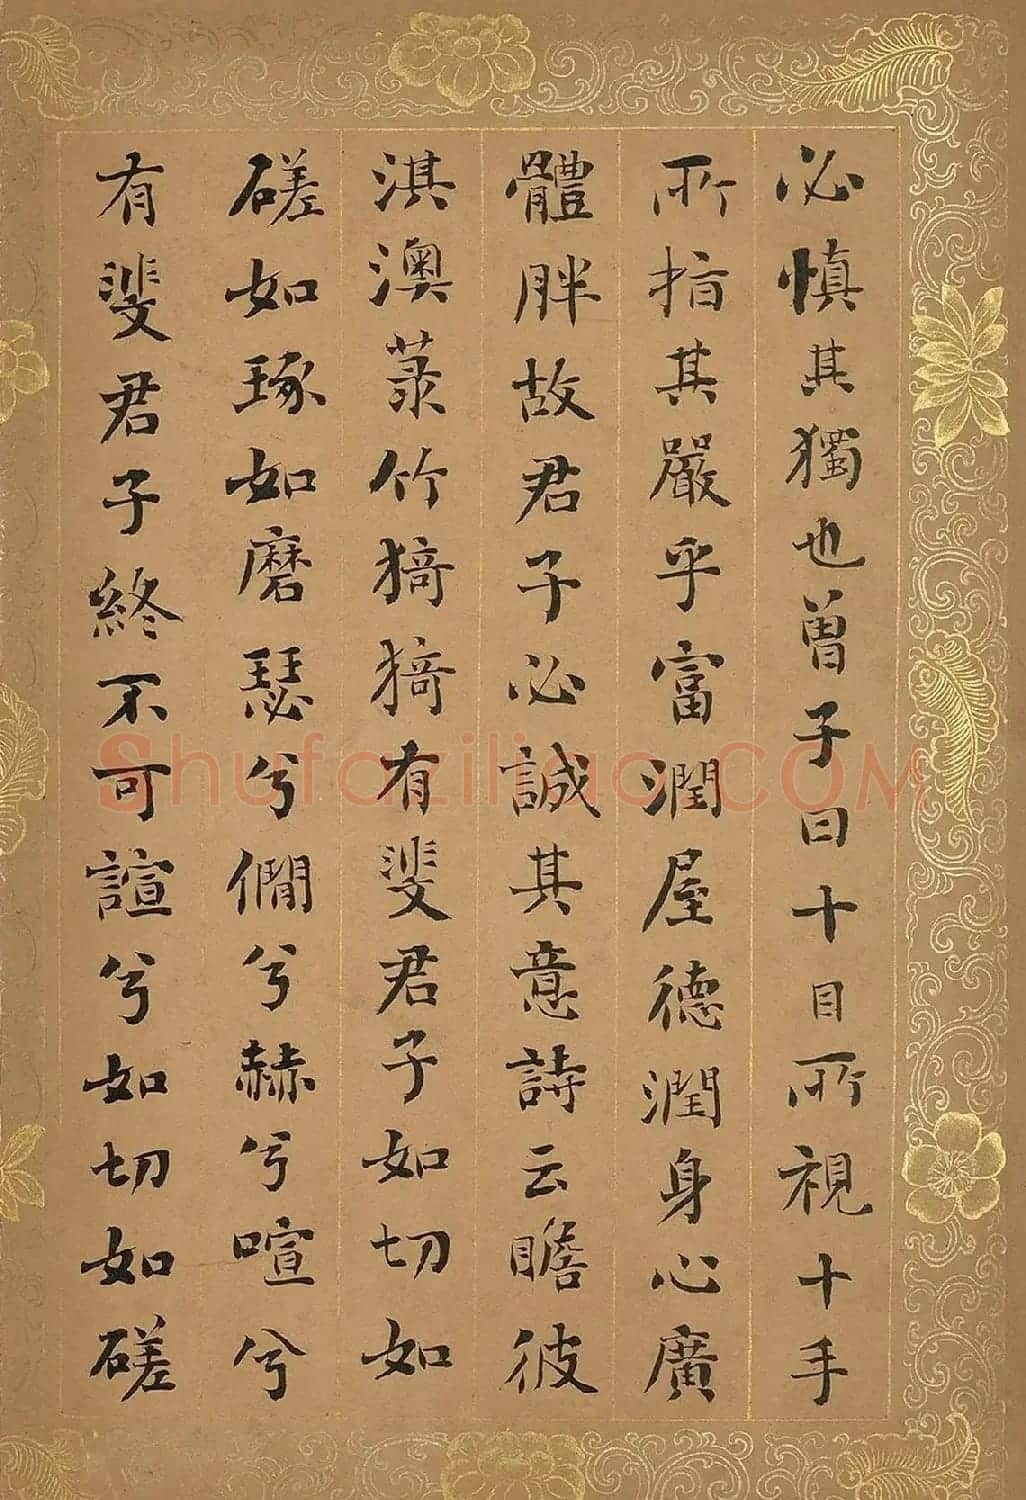 必慎其獨也曾子曰十目所視十手
所指其嚴乎富潤屋德潤身心廣
體胖故君子必誠其意詩云瞻彼
淇澳菉竹猗猗有斐君子如切如
磋如琢如磨瑟兮僩兮赫兮喧兮
有斐君子終不可諠兮如切如磋
Shufaziliao.COM